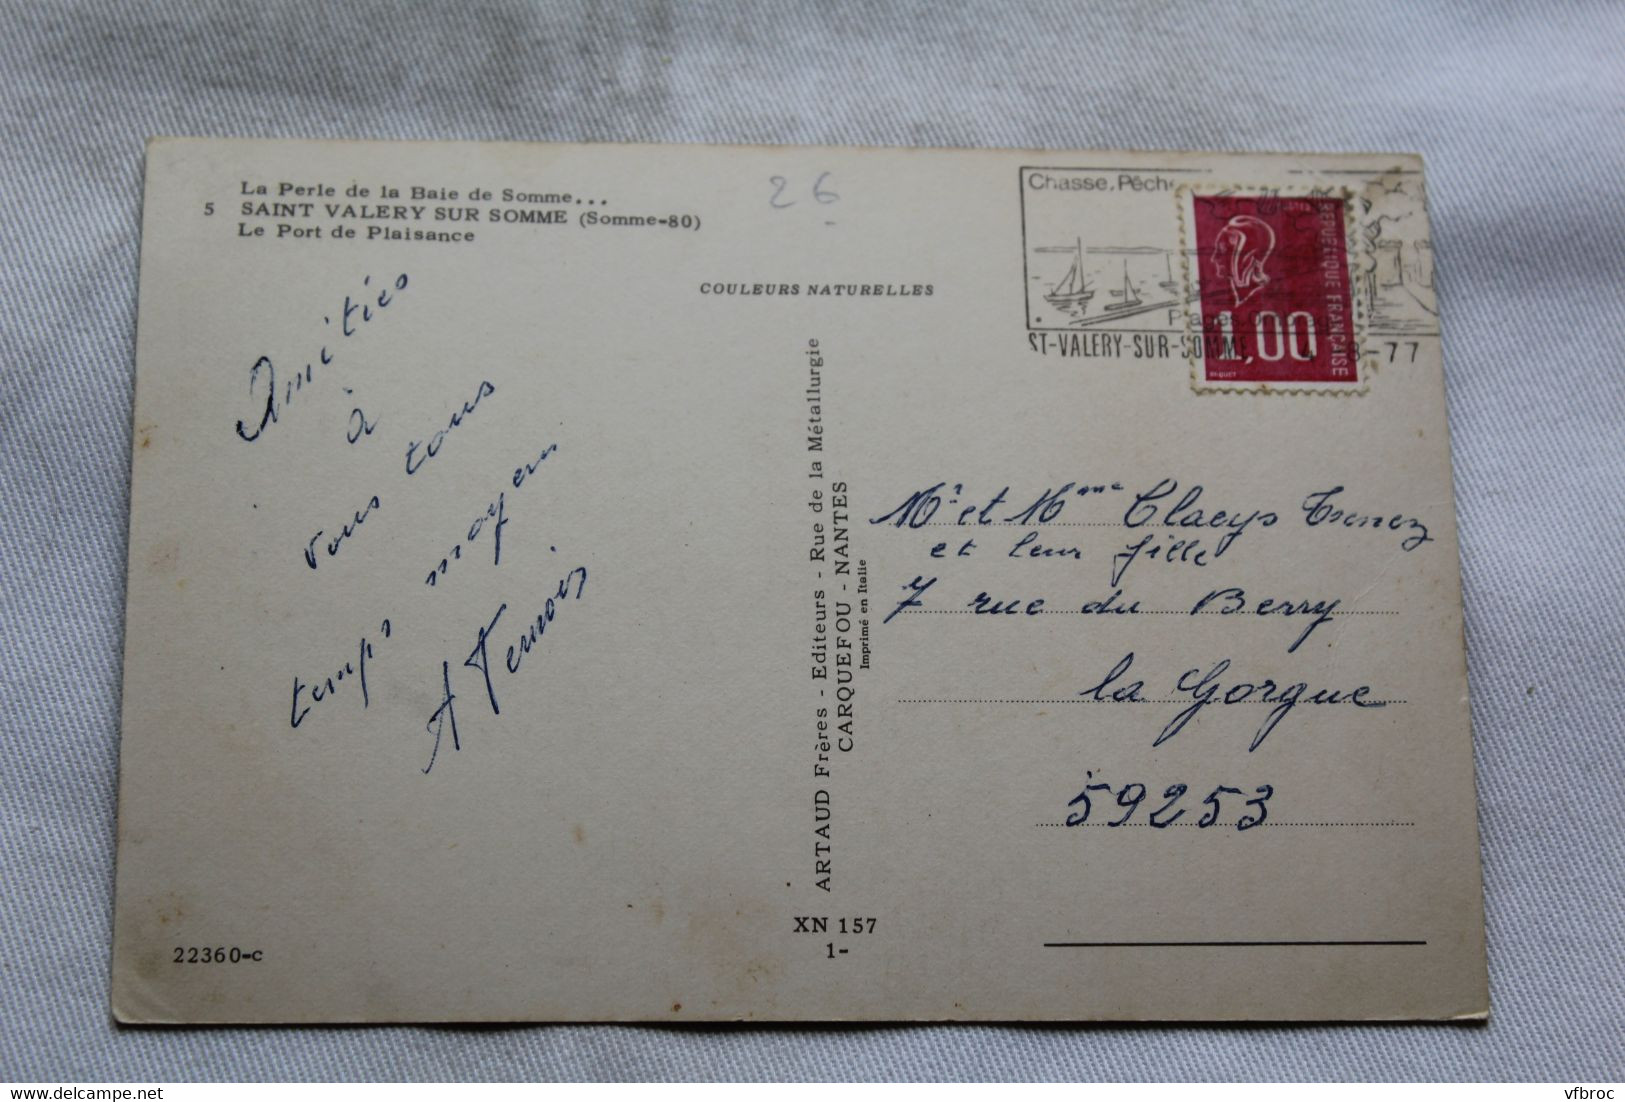 La Perle de la Baie de Somme...
5 SAINT VALERY SUR SOMME (Somme-80)
Le Port de Plaisance
26
COULEURS NATURELLES
Chasse, Pêche
ST-VALERY-SUR-SOMME
4 -8-77
REPUBLIQUE FRANÇAISE
1,00
Amitiés
à
vous tous
temps moyen
A Ternois
ARTAUD Frères - Editeurs - Rue de la Métallurgie
CARQUEFOU - NANTES
Imprimé en Italie
Mr et Mme Claeys
et leur fille
7 rue du Berry
la Gorgue
59253
XN 157
1-
22360-c
vfbroc